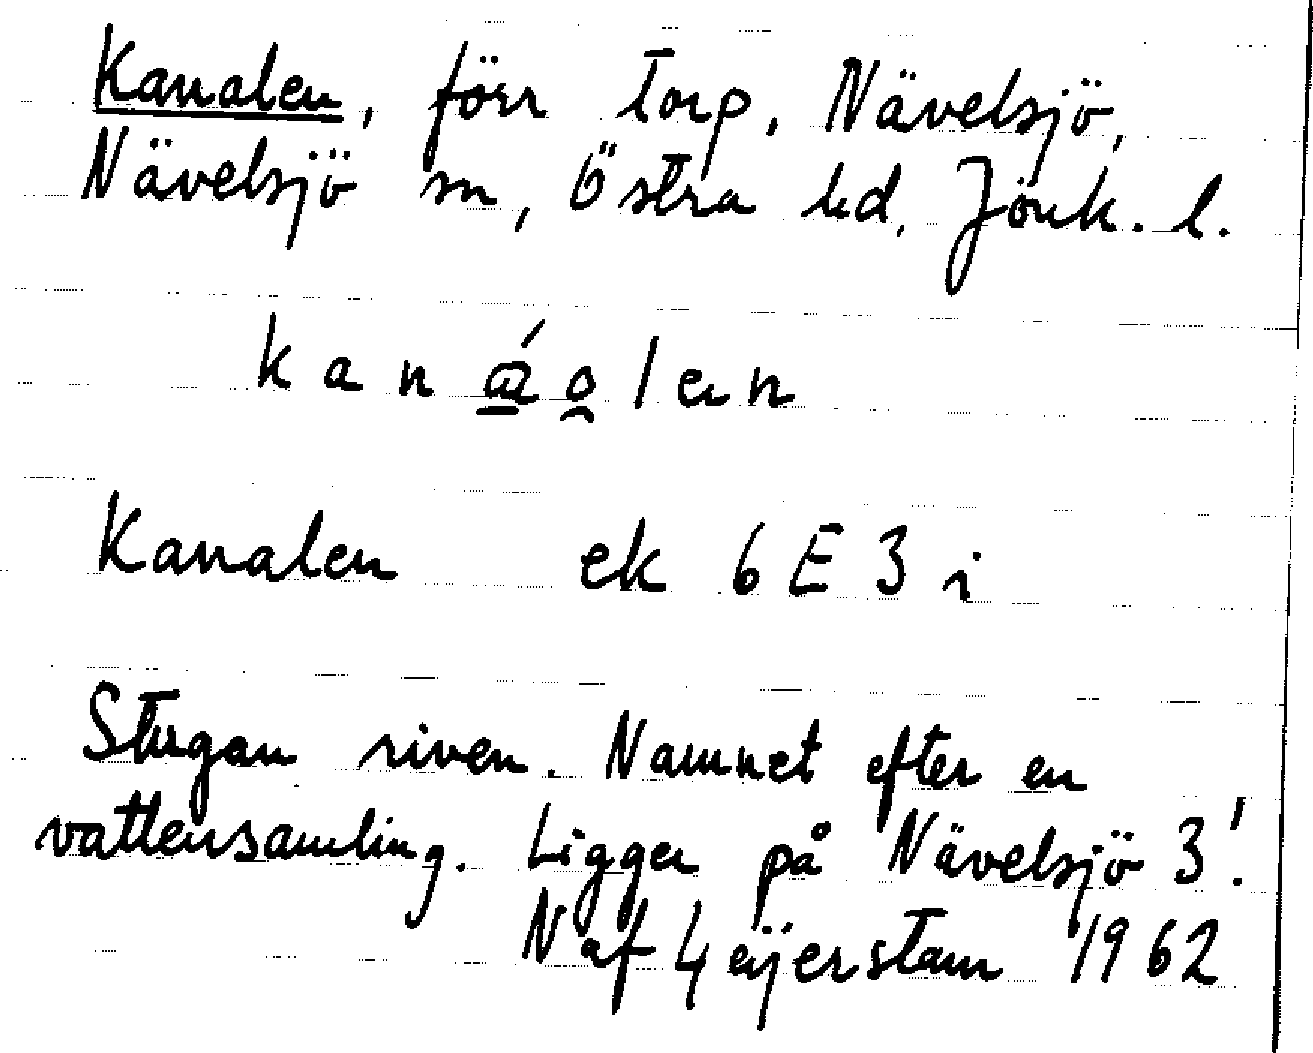 Kanalen, förr torp, Nävelsjö,
Nävelsjö sn, Östra hd, Jönk. l.
kanáolen
Kanalen ek 6E3i
Stugan riven. Namnet efter en
vattensamling. Ligger på Nävelsjö 3!
N af Geijerstam 1962